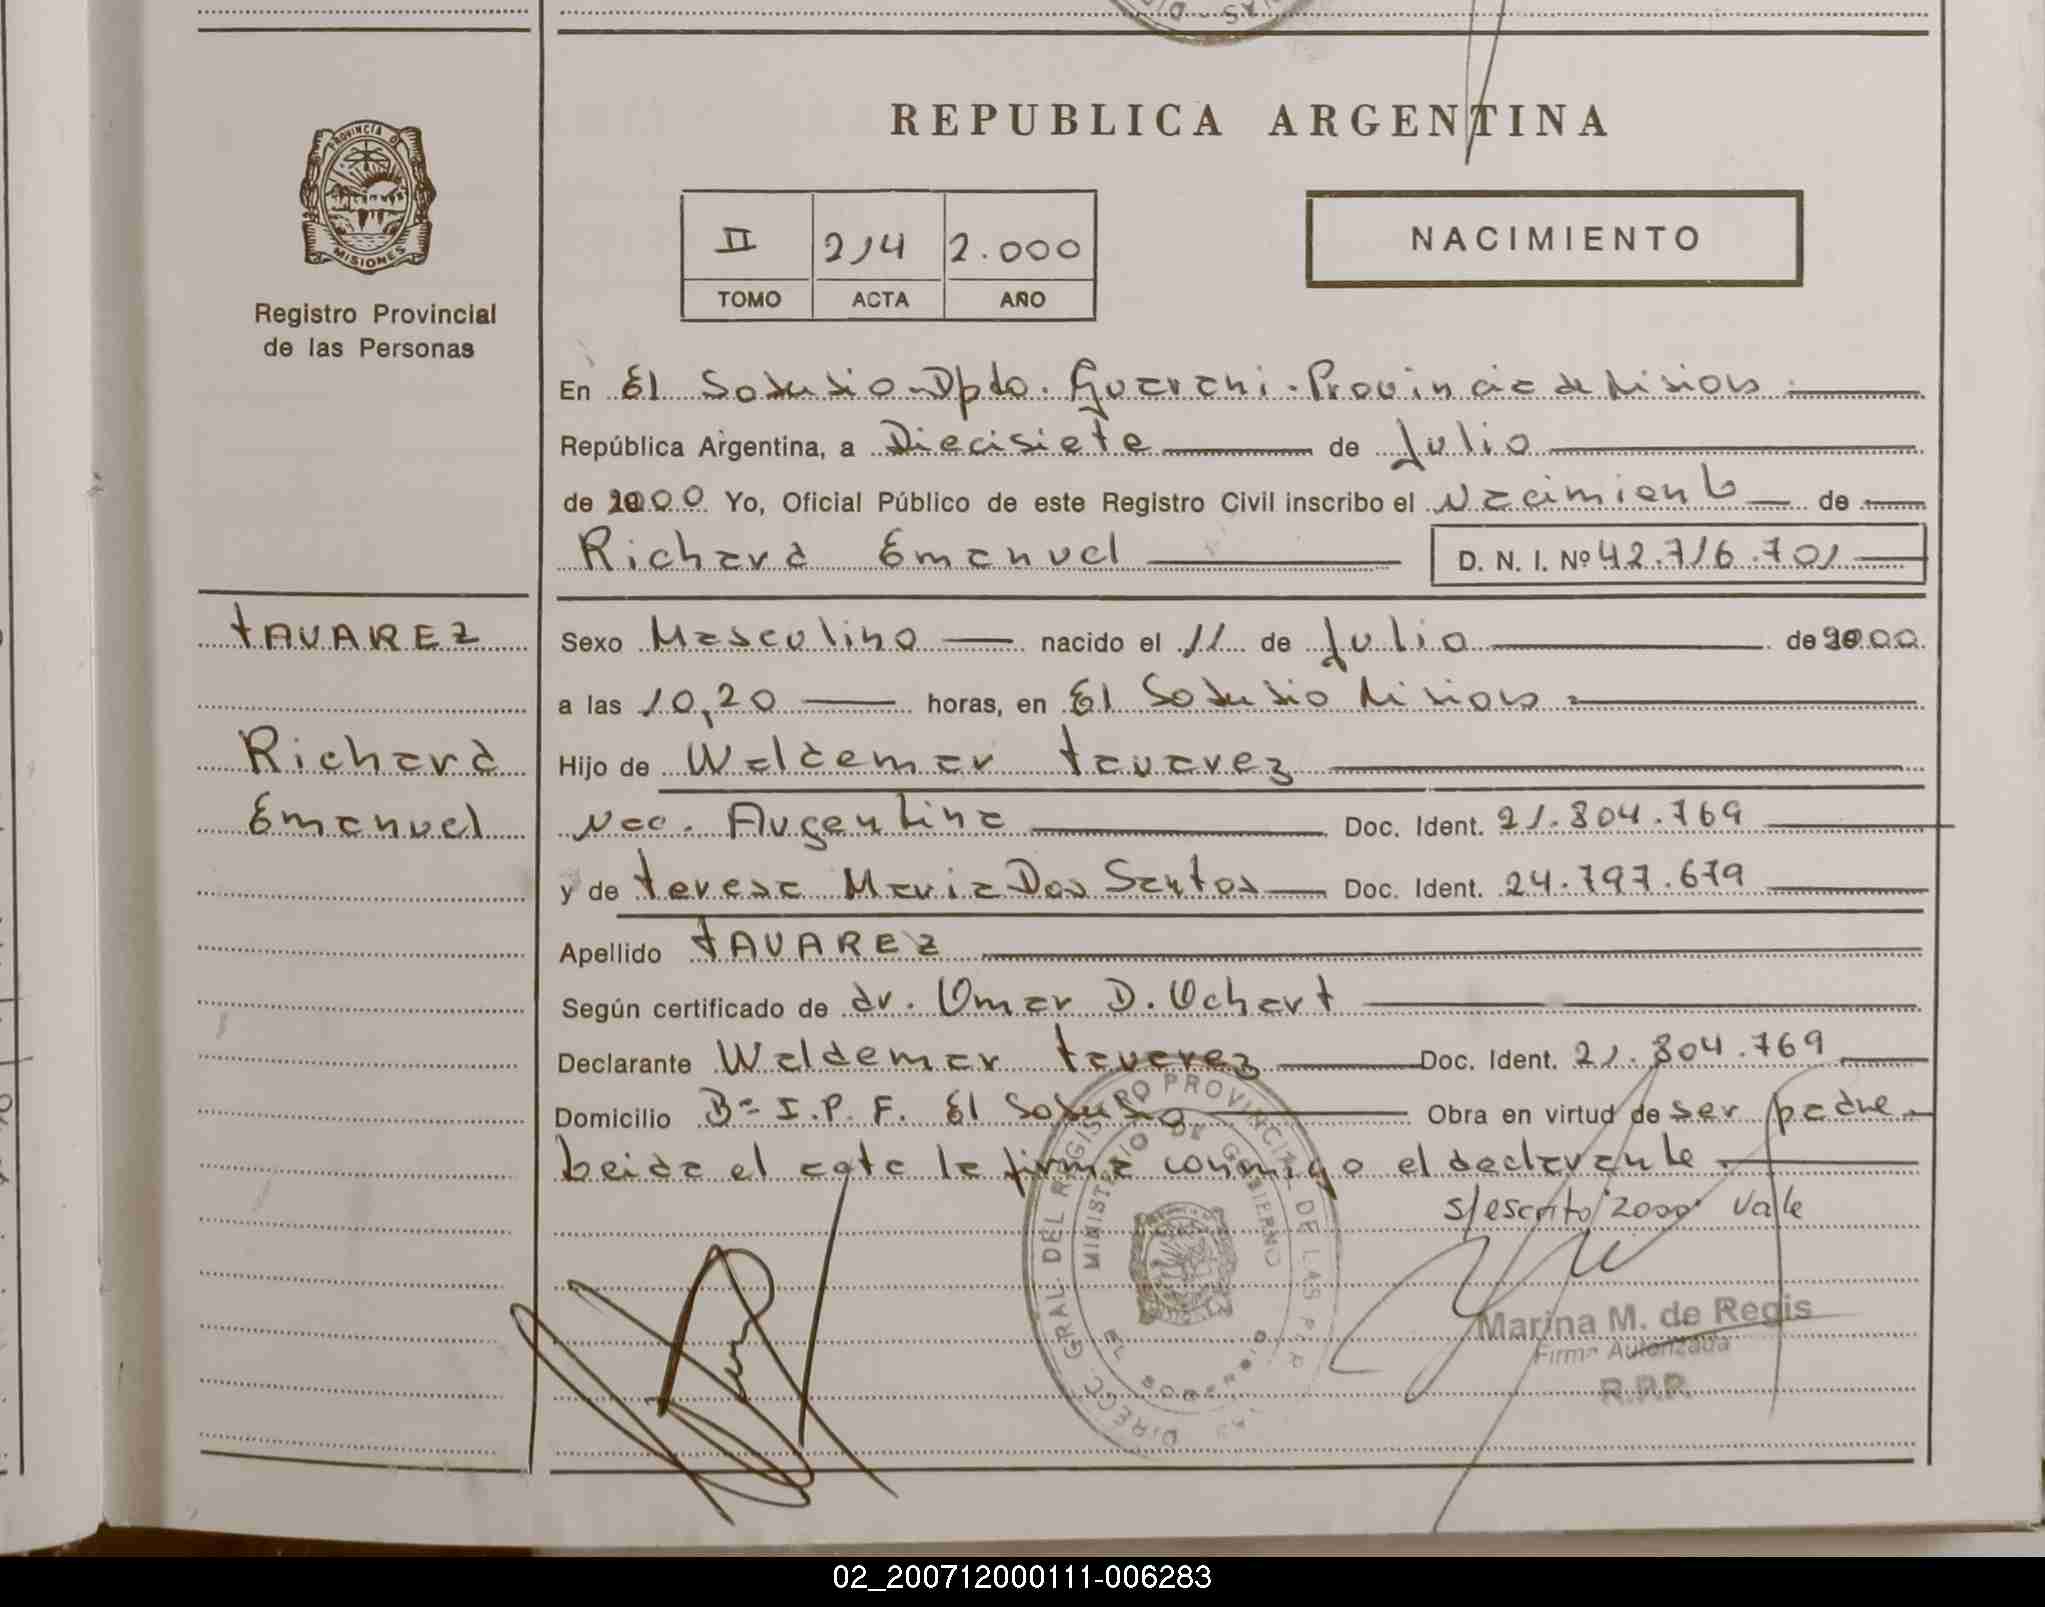 REPUBLICA ARGENTINA
PROVINCIA D
MISIONES
Registro Provincial
de las Personas
II 214 2.000
TOMO ACTA AÑO
NACIMIENTO
En El Soberbio - Dpto. Guarani - Provincia de Misiones
República Argentina, a Diecisiete de Julio
de 2000 Yo, Oficial Público de este Registro Civil inscribo el Nacimiento de
Richard Emanuel D. N. I. Nº 42.716.701
TAVAREZ
Richard
Emanuel
Sexo Masculino nacido el 11 de Julio de 2000
a las 10,20 horas, en El Soberbio Misiones
Hijo de Waldemar Tavarez
Nac. Argentina Doc. Ident. 21.804.769
y de Teresa Maria Dos Santos Doc. Ident. 24.797.679
Apellido TAVAREZ
Según certificado de dr. Omar D. Ochart
Declarante Waldemar Tavarez Doc. Ident. 21.804.769
Domicilio Bº I.P.F. El Soberbio Obra en virtud de ser padre
Leida el acta la firma conmigo el declarante
s/escrito "2000" Vale
DIRECC. GRAL. DEL REGISTRO PROVINCIAL DE LAS PER
MINISTERIO DE GOBIERNO
EL SOBERBIO
Marina M. de Regis
Firma Autorizada
R.P.P.
02_200712000111-006283